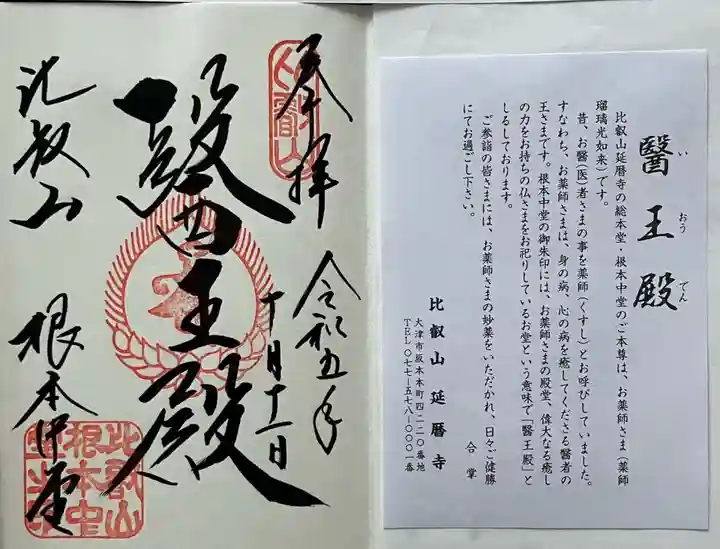 醫王殿
いおうでん
比叡山延暦寺の総本堂・根本中堂のご本尊は、お薬師さま(薬師
瑠璃光如来)です。
昔、お醫(医)者さまの事を薬師(くすし)とお呼びしていました。
すなわち、お薬師さまは、身の病、心の病を癒してくださる醫者の
王さまです。根本中堂の御朱印には、お薬師さまの殿堂、偉大なる癒し
の力をお持ちの仏さまをお祀りしているお堂という意味で「醫王殿」と
しるしております。
ご参詣の皆さまには、お薬師さまの妙薬をいただかれ、日々ご健勝
にてお過ごし下さい。
合掌
比叡山延暦寺
大津市坂本本町四二二〇番地
TEL〇七七-五七八-〇〇〇一番
奉拝
比叡山
令和五年
十月十一日
醫王殿
比叡山
根本中堂
比叡山
根本中